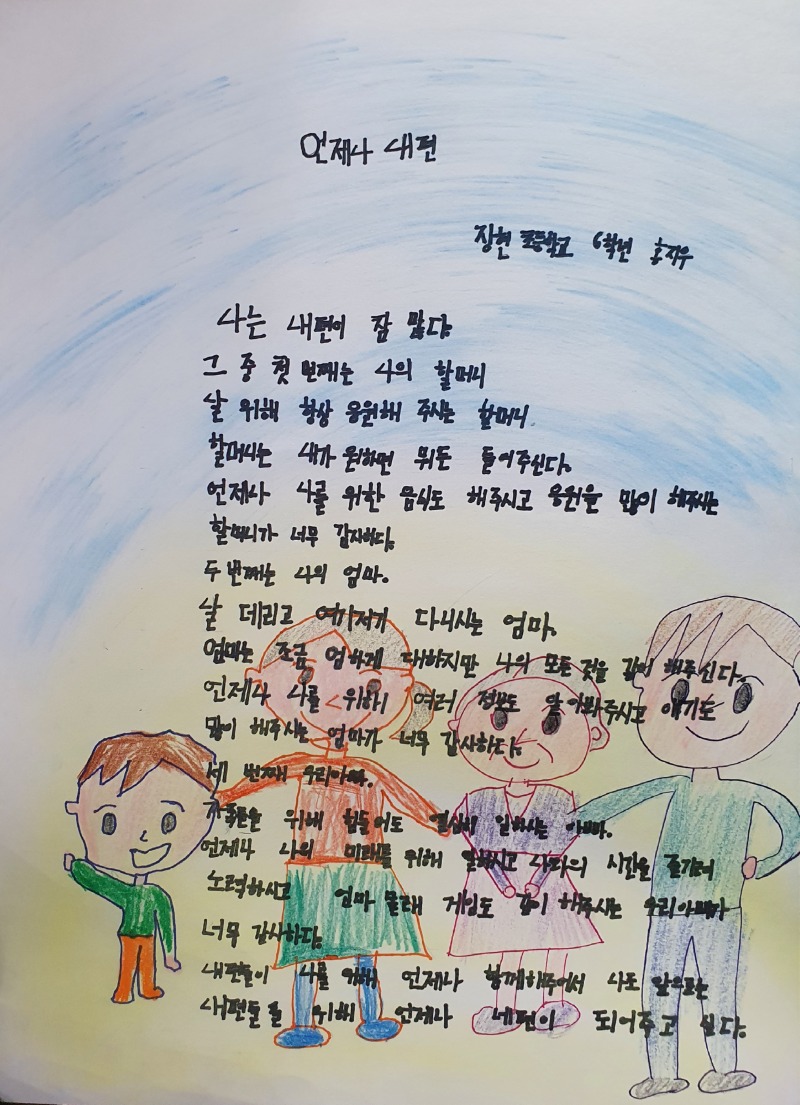 언제나 내편
장현 초등학교 6학년 홍지우
나는 내편이 참 많다.
그 중 첫 번째는 나의 할머니
날 위해 항상 응원해 주시는 할머니.
할머니는 내가 원하면 뭐든 들어주신다.
언제나 나를 위한 음식도 해주시고 응원을 많이 해주시는
할머니가 너무 감사하다.
두 번째는 나의 엄마.
날 데리고 여기저기 다니시는 엄마.
엄마는 조금 엄하게 대하지만 나의 모든 것을 같이 해주신다.
언제나 나를 위하 여러 정보도 알아봐주시고 얘기도
많이 해주시는 엄마가 너무 감사하다.
세 번째 우리아빠.
가족들을 위해 힘들어도 열심히 일하시는 아빠.
언제나 나의 미래를 위해 일하시고 나와의 시간을 즐기려
노력하시고 엄마 몰래 게임도 같이 해주시는 우리아빠가
너무 감사하다.
내편들이 나를 위해 언제나 함께해주어서 나도 앞으로는
내편들을 위해 언제나 네편이 되어주고 싶다.